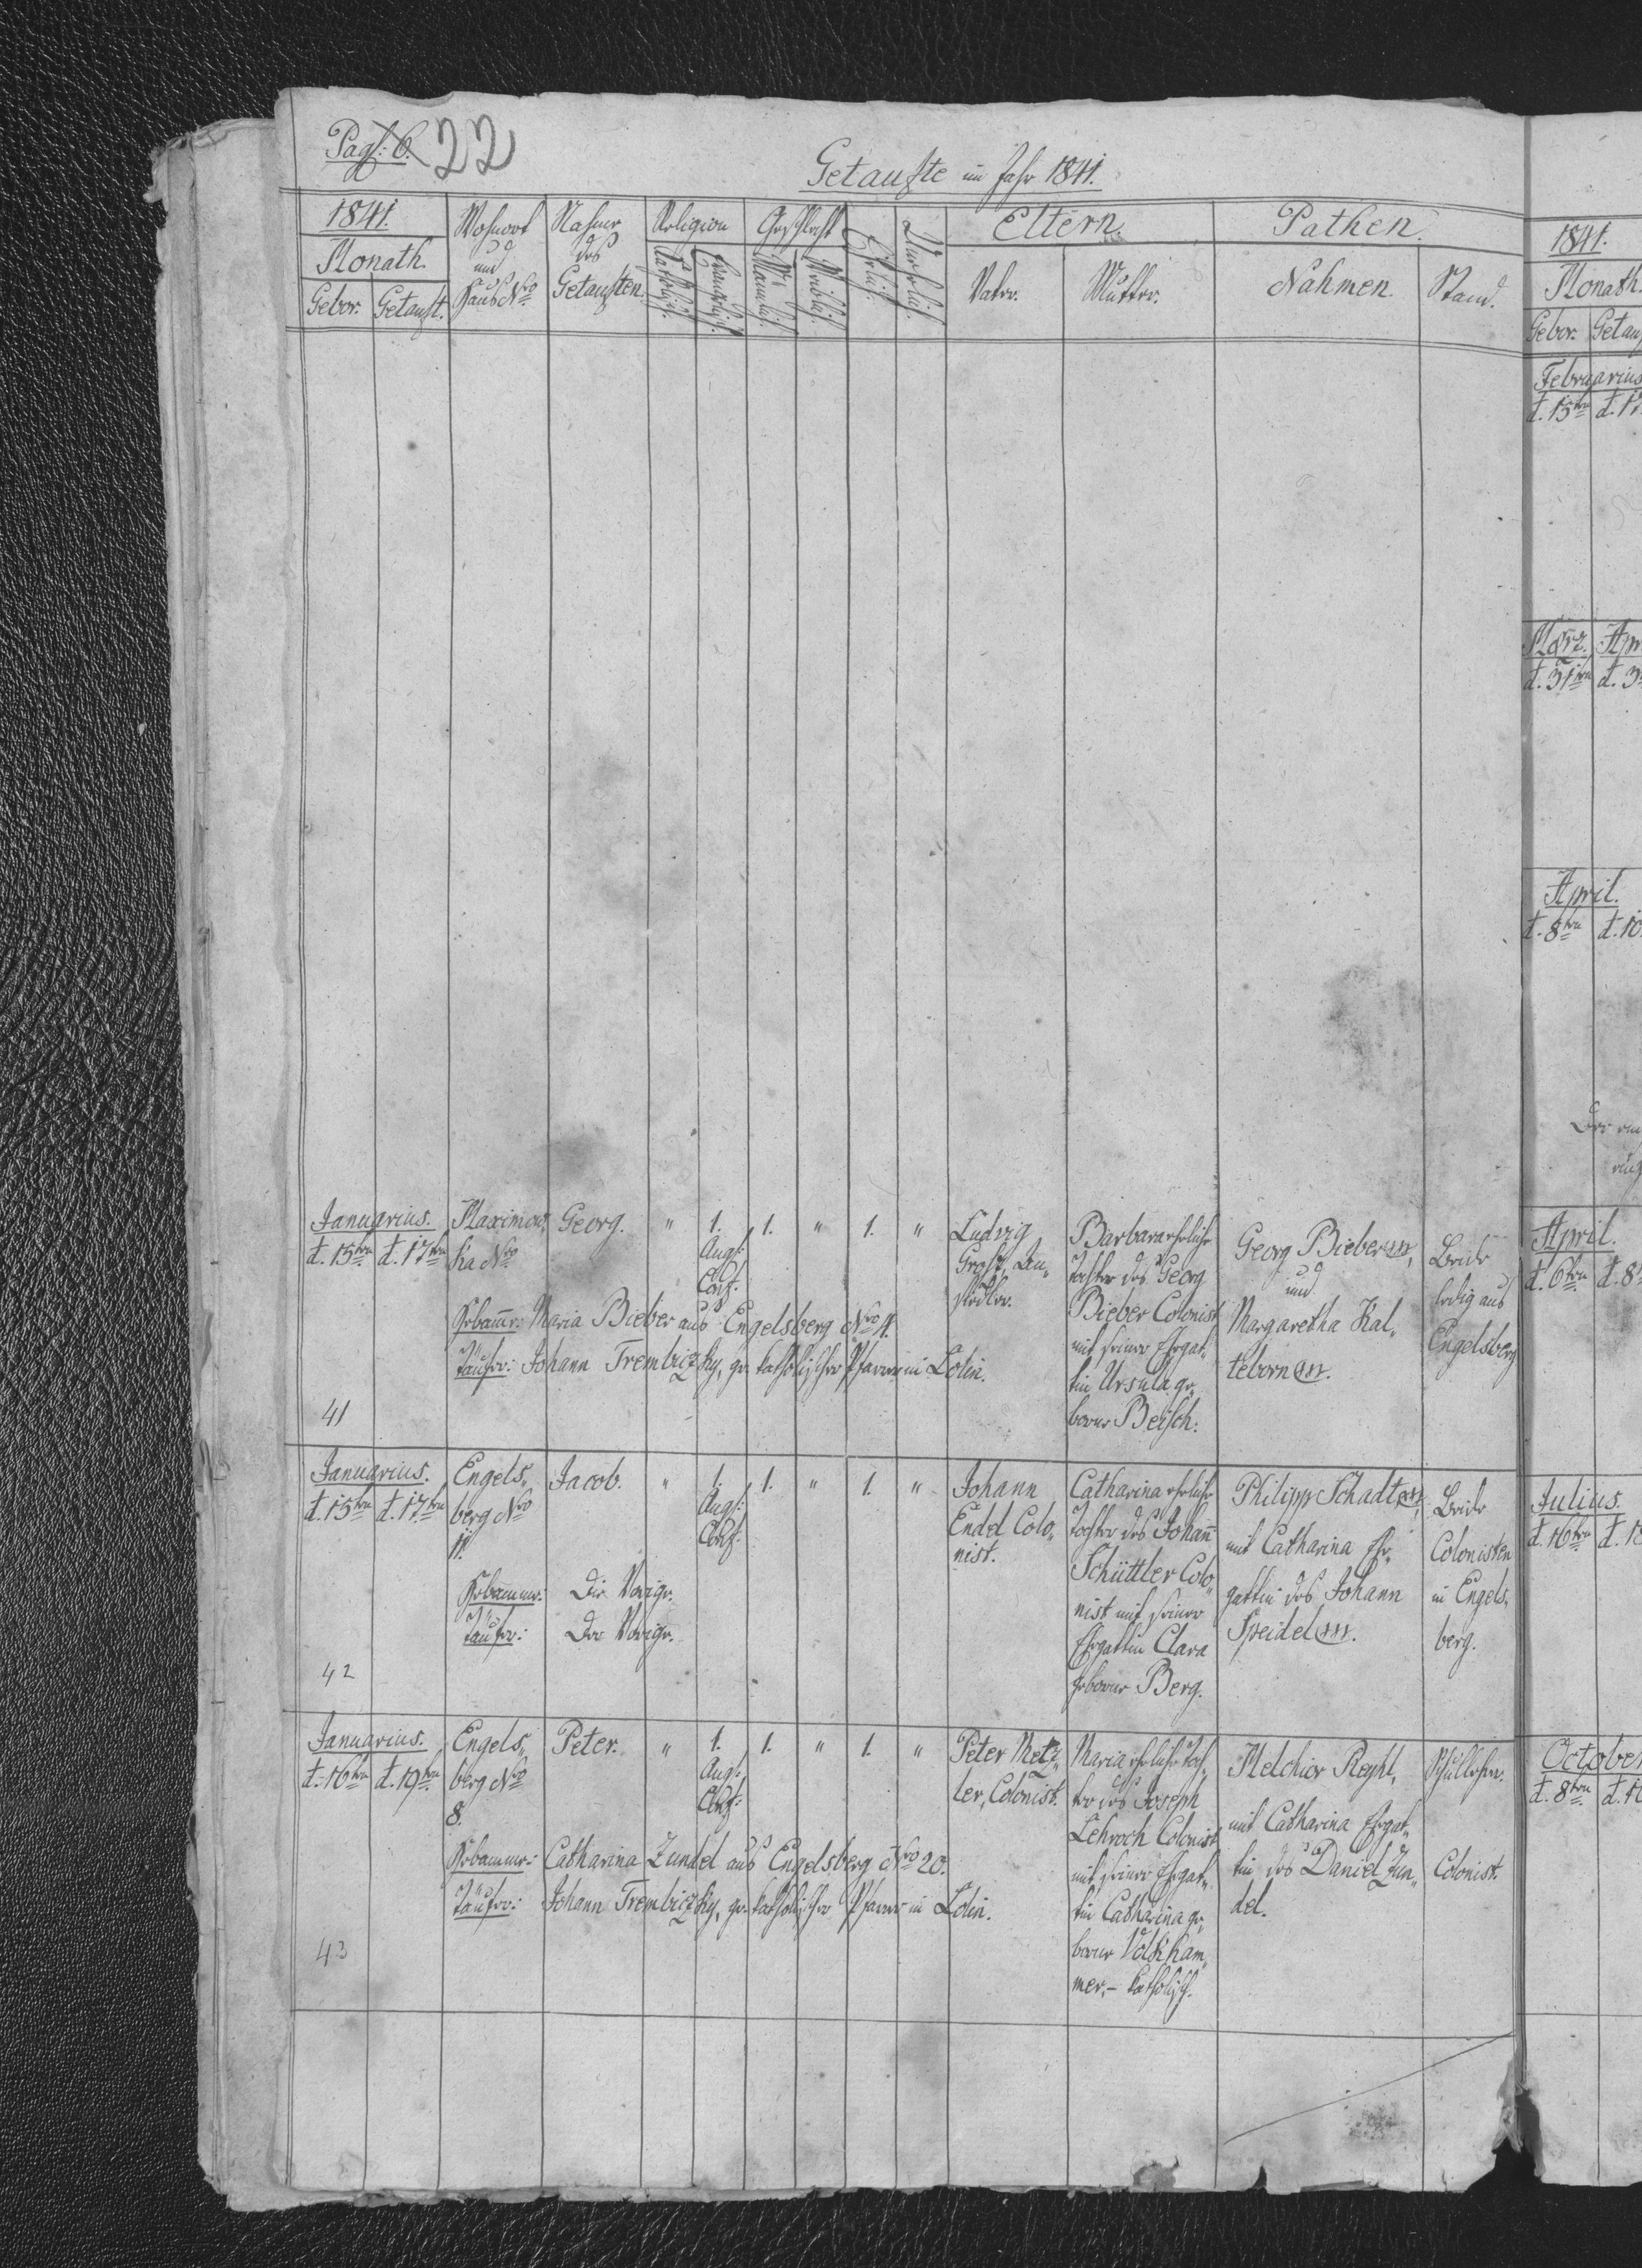 Pag: 6. 22
Getaufte im Jahr 1841.
1841.
Monath.
Gebor. Getauft.
Wohnort und Haus Nro
Nahme des Getauften.
Religion
Katholisch. Evangelisch.
Geschlecht
Männlich. Weiblich.
Ehelich.
Unehelich.
Eltern.
Vater. Mutter.
Pathen.
Nahmen. Stand.
Januarius.
d. 15ten d. 17ten
Maximow,
ka Nro
Georg.
" 1. 1. " 1. "
Augs:
Conf:
Ludwig
Groß, An„
siedler.
Barbara eheliche
Tochter des Georg
Bieber Colonist
mit seiner Ehegat„
tin Ursula ge„
borne Beisch.
Georg Bieber m,
und
Margaretha Kal„
teborn m.
Beide
ledig aus
Engelsberg
Hebamme: Maria Bieber aus Engelsberg Nro 4.
Täufer: Johann Trembiczky, gr. katholischer Pfarrer in Lolin.
41
Januarius.
d. 15ten d. 17ten
Engels„
berg Nro
11.
Jacob.
" 1. 1. " 1. "
Augs:
Conf:
Johann
Endel Colo„
nist.
Catharina eheliche
Tochter des Johann
Schüttler Colo„
nist mit seiner
Ehegattin Clara
geborne Berg.
Philipp Schadt m,
mit Catharina Ehe„
gattin des Johann
Speidel m.
Beide
Colonisten
in Engels„
berg.
Hebamme: Die Vorige.
Täufer: Der Vorige.
42
Januarius.
d. 16ten d. 19ten
Engels„
berg Nro
8.
Peter.
" 1. 1. " 1. "
Augs:
Conf:
Peter Metz„
ler, Colonist.
Maria eheliche Toch„
ter des Joseph
Lehroch Colonist
mit seiner Ehegat„
tin Catharina ge„
borne Volkham„
mer, – katholisch.
Melchior Reyhl,
mit Catharina Ehegat„
tin des Daniel Zun„
del.
Schullehrer.
Colonist.
Hebamme: Catharina Zundel aus Engelsberg Nro 20.
Täufer: Johann Trembiczky, gr. katholischer Pfarrer in Lolin.
43
1841.
Monath.
Gebor. Getau
Februarius
d. 15ten d. 17
März. Apr
d. 31ten d. 3
April.
d. 8ten d. 10
April.
d. 6ten d. 8
Julius.
d. 16ten d. 18
October
d. 8ten